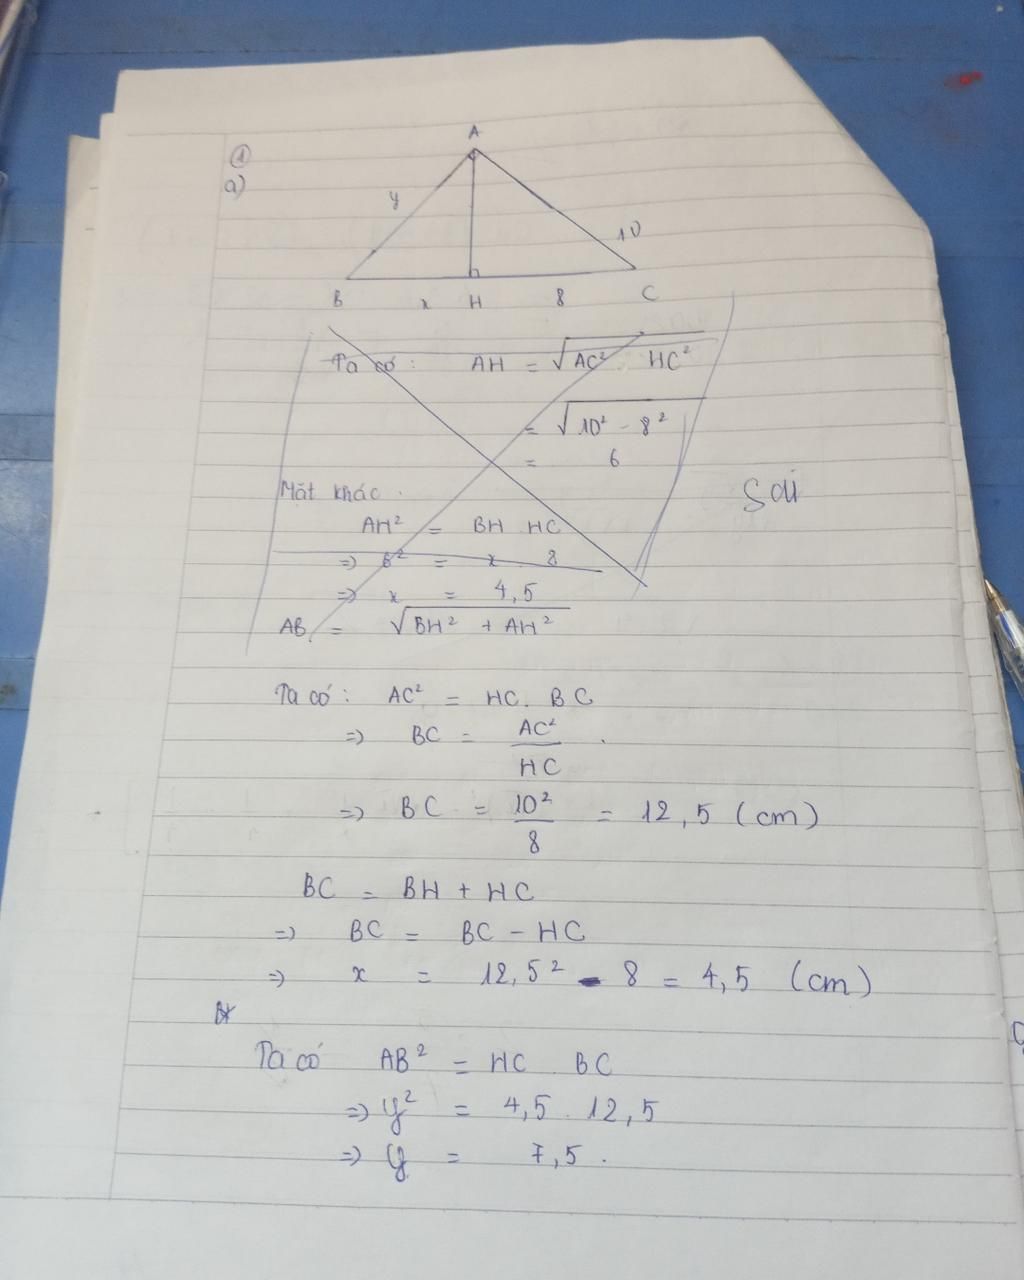 ①
a)
A
y
10
B x H 8 C
Ta có : AH = √AC² HC²
= √10² - 8²
= 6
Mặt khác .
Sai
AH² = BH HC
=> 6² = x . 8
=> x = 4,5
AB = √BH² + AH²
Ta có : AC² = HC . BC
=> BC = AC²/HC .
=> BC = 10²/8 = 12,5 (cm)
BC = BH + HC
=> BC = BC - HC
=> x = 12,5² - 8 = 4,5 (cm)
Ta có AB² = HC BC
=> y² = 4,5 . 12,5
=> y = 7,5 .